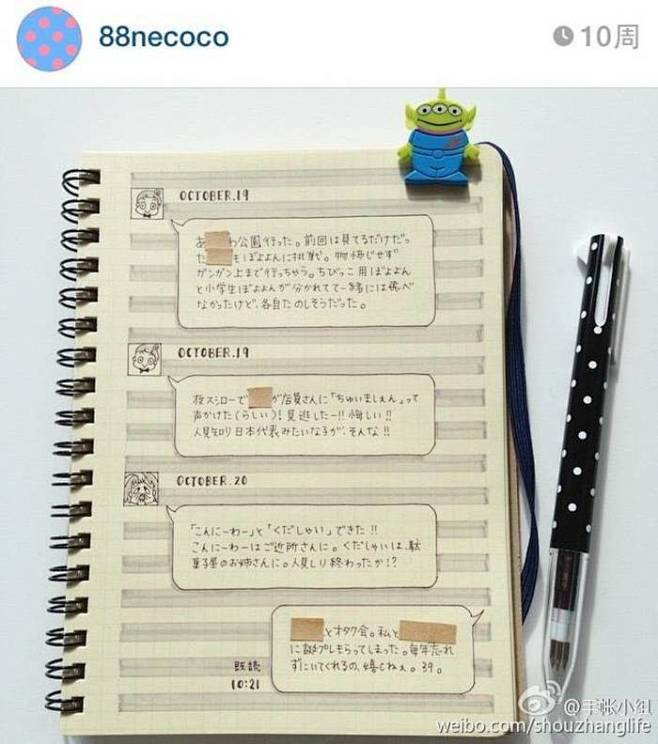 88necoco
10周
OCTOBER.19
あ わ公園行った。前回は見てるだけだっ
た もぽよよんに挑戦。物怖じせず
ガンガン上まで行っちゃう。ちびっこ用ぽよよん
と小学生ぽよよんが分かれてて一緒には遊べ
なかったけど、各自たのしそうだった。
OCTOBER.19
夜スシローで が店員さんに「ちゅいましぇん」って
声かけた(らしい)!見逃したー!!悔しい!!
人見知り日本代表みたいな子が、そんな!!
OCTOBER.20
「こんにーわー」と「くだしゃい」できた!!
こんにーわーはご近所さんに。くだしゃいは、駄
菓子屋のお姉さんに。人見しり終わったか!?
とオタク会。私と
に誕プレもらってしまった。毎年忘れ
ずにいてくれるの、嬉しねぇ。39。
既読
10:21
@手张小组
weibo.com/shouzhanglife